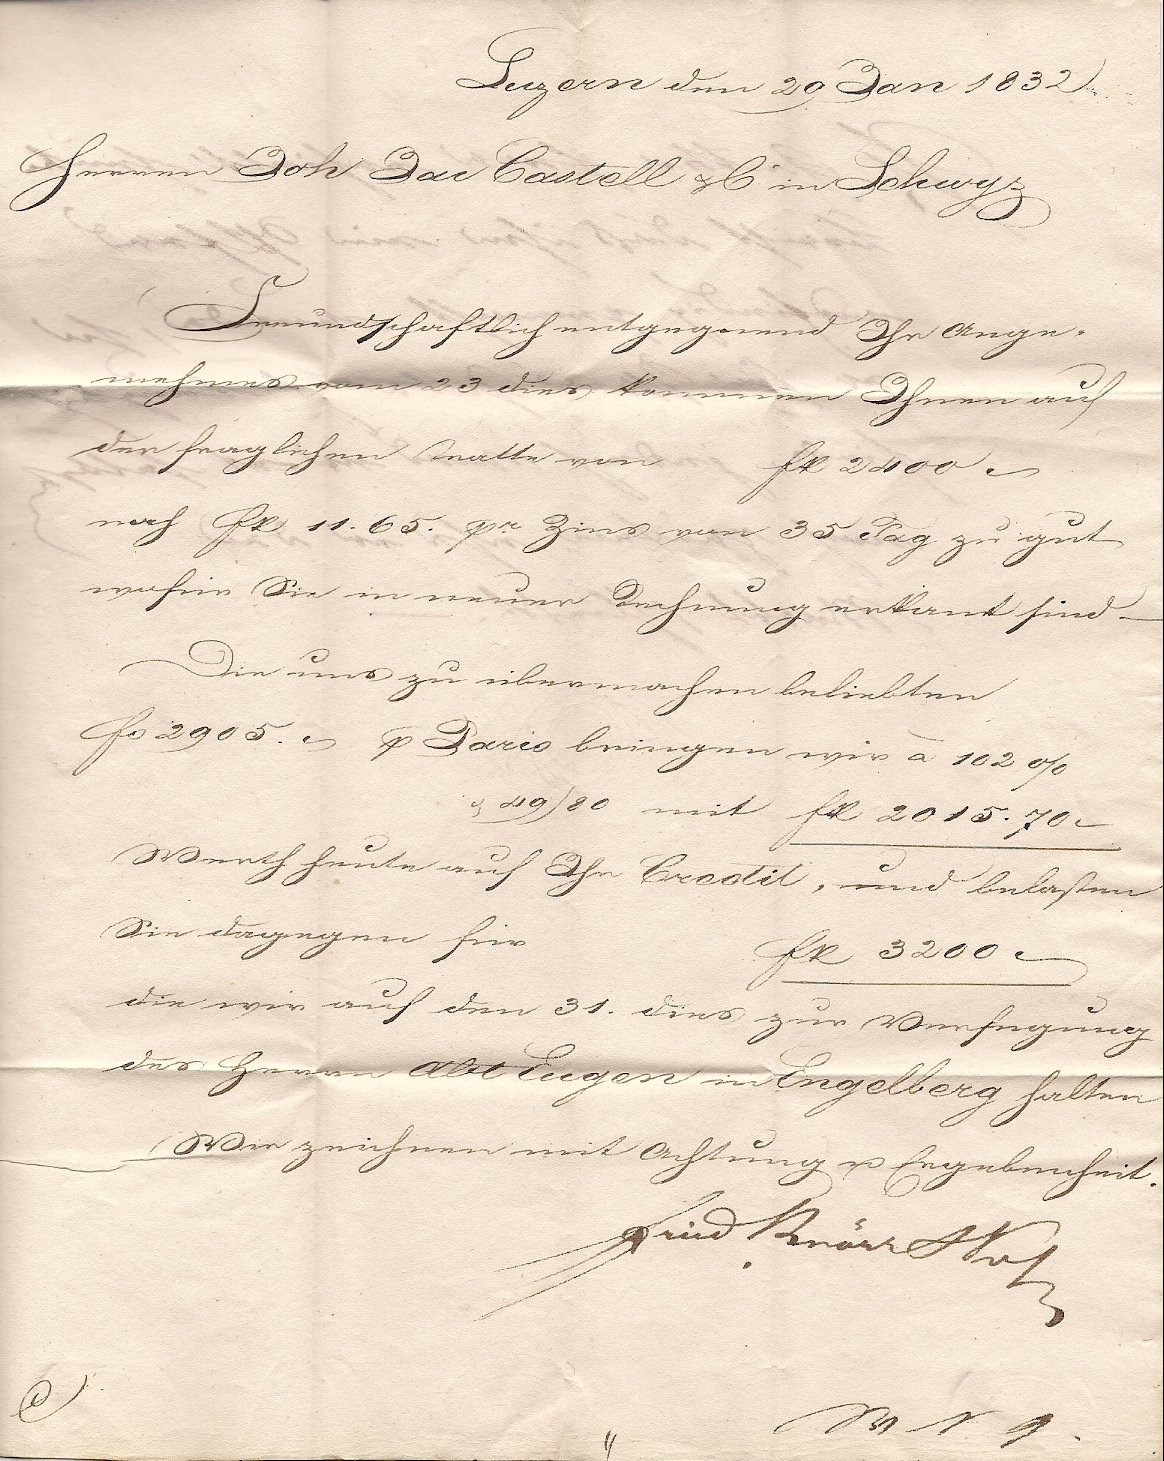 Luzern den 29 Jan 1832
Herren Joh Jac Castell & Cº in Schwyz
Freundschaftlich entgegnend Ihr Ange-
nehmes vom 23 dies kommen Ihnen auf
der fraglichen Tratte von fR 2400
noch fR 11.65. pr Zins von 35 Tag zu gut
wofür Sie in neuer Rechnung erkant sind
Die uns zu übermachen beliebten
fs 2905. p Paris bringen wir a 102 %
49/80 mit fR 2015.70
Werth heute auf Ihr Credit, und belasten
Sie dagegen für fR 3200
die wir auf den 31. dies zur Verfugung
des Herrn Abt Eugen in Engelberg halten
Wir zeichnen mit Achtung u Ergebenheit.
Frid Knörr